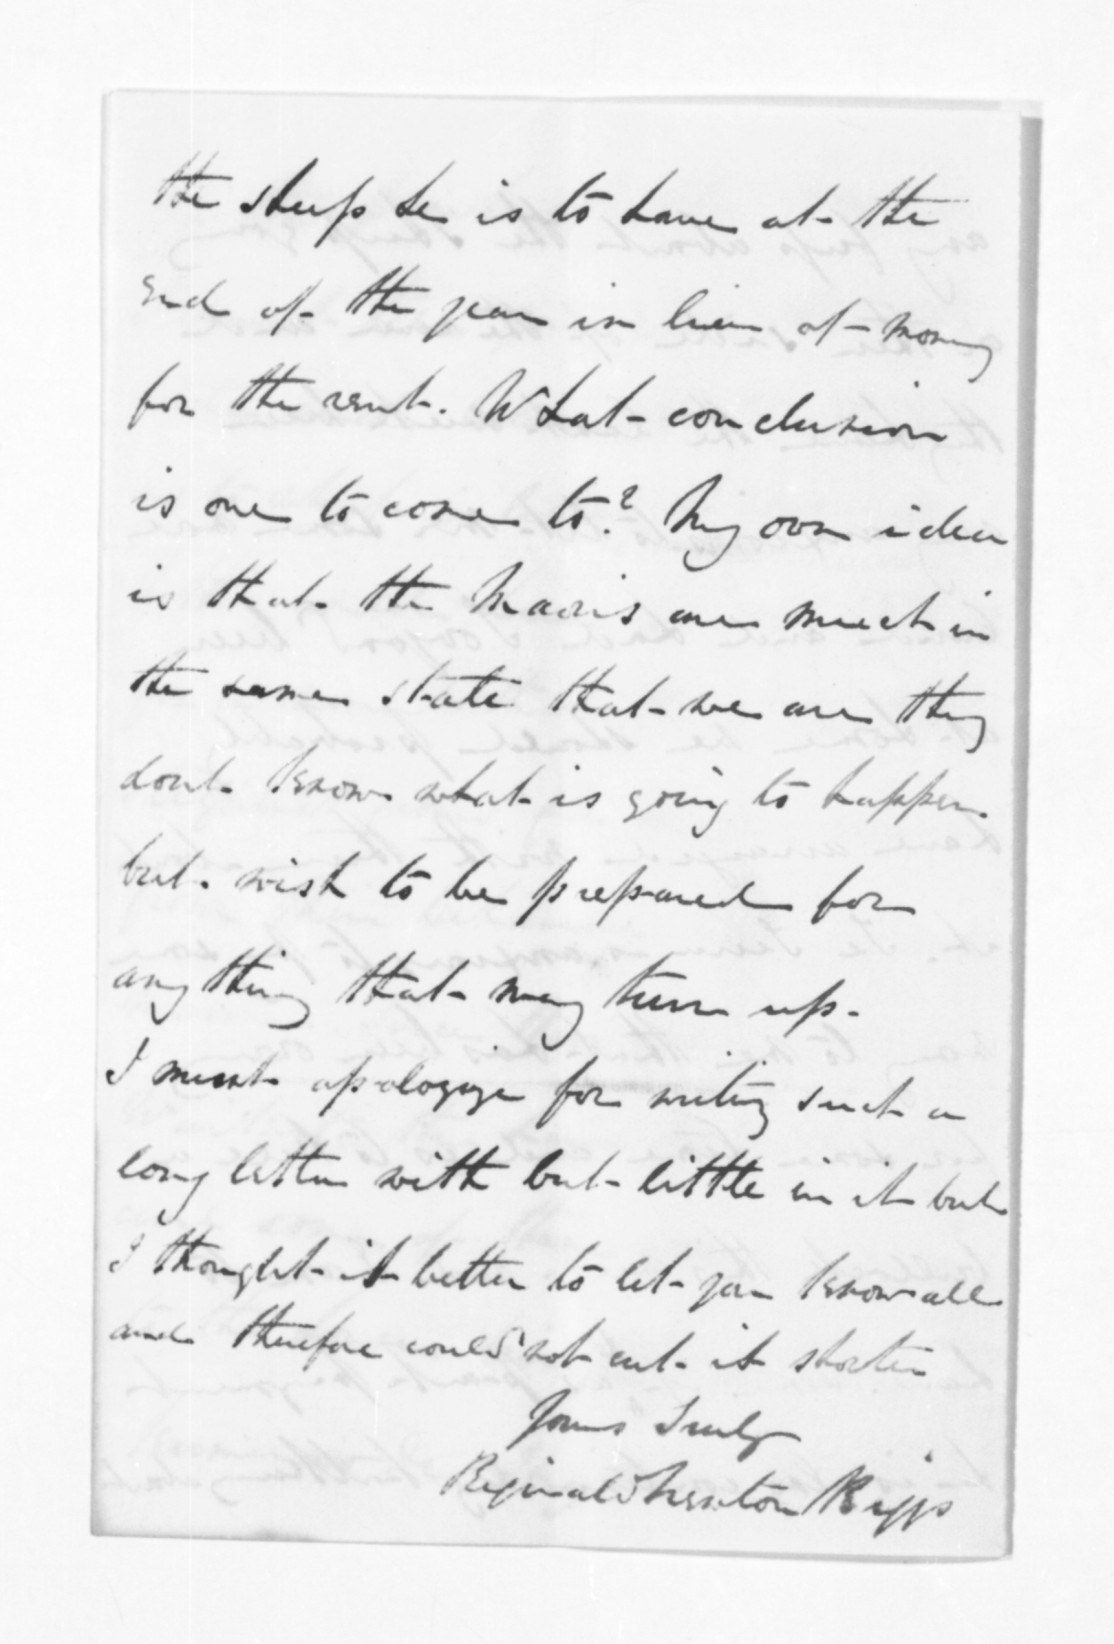 the sheep he is to have at the
end of the year in lieu of money
for the rent. What conclusion
is one to come to? My own idea
is that the Maoris are much in
the same state that we are they
dont know what is going to happen
but wish to be prepared for
anything that may turn up.
I must apologize for writing such a
long letter with but little in it but
I thought it better to let you know all
and therefore could not cut it shorter
Yours Truly
Reginald Newton Biggs